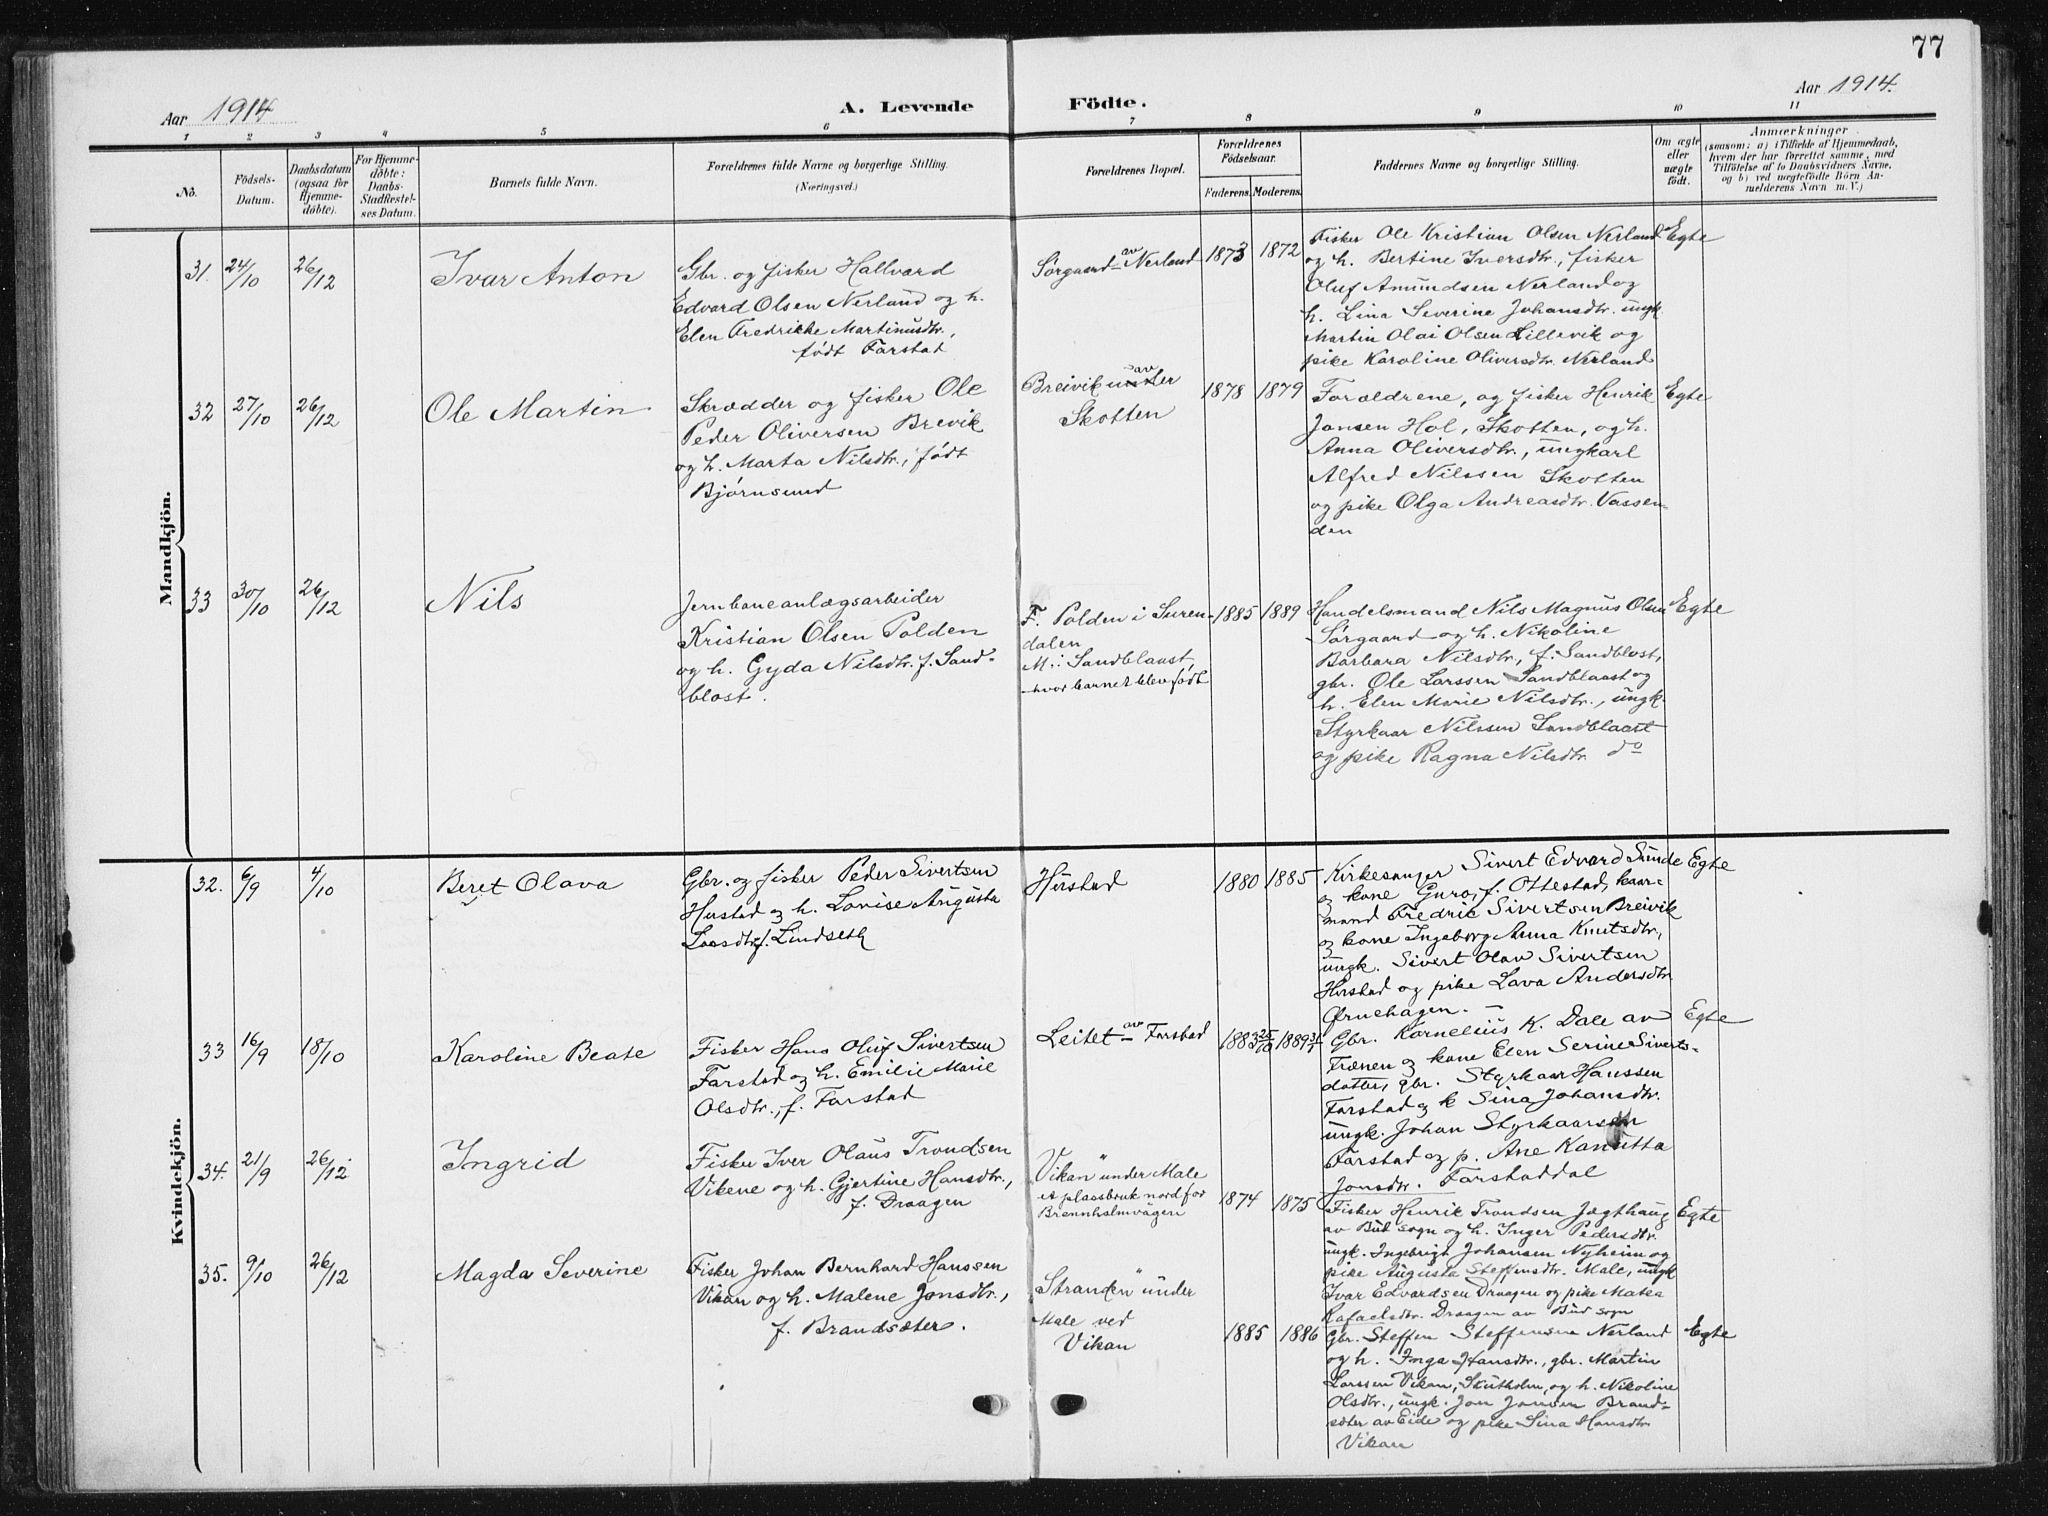 77
Aar 1914
A. Levende
Födte.
Aar 1914.
1 2 3 4 5 6 7 8 9 10 11
No.
Födsels-
Datum.
Daabsdatum
(ogsaa for
Hjemme-
døbte).
For Hjemme-
døbte:
Daabs-
Stadfæstel-
ses Datum.
Barnets fulde Navn.
Forældrenes fulde Navne og borgerlige Stilling.
(Næringsvei.)
Forældrenes Bopæl.
Forældrenes
Födselsaar.
Faderens. Moderens.
Faddernes Navne og borgerlige Stilling.
Om ægte
eller
uægte
født.
Anmærkninger
(saasom: a) i Tilfælde af Hjemmedaab,
hvem der har forrettet samme, med
Tilføielse af to Daabsvidners Navne,
og b) ved uægtefödte Börn An-
melderens Navn m. V.)
Mandkjön.
31. 24/10 26/12 Ivar Anton
Gbr. og fisker Hallvard
Edvard Olsen Nerland og h.
Elen Fredrikke Martinusdtr.,
født Farstad
Sørgaard av Nerland
1873 1872
Fisker Ole Kristian Olsen Nerland
og h. Bertine Iversdtr., fisker
Oluf Amundsen Nerland og
h. Lina Severine Johansdtr. ungk
Martin Olai Olsen Lillevik og
pike Karoline Oliversdtr. Nerland
Egte
32 27/10 26/12 Ole Martin
Skrædder og fisker Ole
Peder Oliversen Brevik
og h. Marta Nilsdtr., født
Bjørnsund
Breivik under av
Skotten
1878 1879
Forældrene, og fisker Henrik
Jansen Hol, Skotten, og h.
Anna Oliversdtr., ungkarl
Alfred Nilssen Skotten
og pike Olga Andreasdtr. Vassen-
den
Egte
33 30/10 26/12 Nils
Jernbaneanlægsarbeider
Kristian Olsen Polden
og h. Gyda Nilsdtr. f. Sand-
blost.
F. Polden i Suren-
dalen
M. i Sandblaast,
hvor barnet blev født
1885 1889
Handelsmand Nils Magnus Olsen
Sørgaard og h. Nikoline
Barbara Nilsdtr, f. Sandblost,
gbr. Ole Larssen Sandblaast og
h. Elen Marie Nilsdtr., ungk.
Styrkaar Nilssen Sandblaast
og pike Ragna Nilsdtr. do
Egte
Kvindekjön.
32. 6/9 4/10 Beret Olava
Gbr. og fisker Peder Sivertsen
Hustad og h. Lovise Augusta
Larsdtr f. Lindseth
Hustad
1880 1885
Kirkesanger Sivert Edvard Sunde
og kone Guro, f. Ottestad, kaar-
mand Fredrik Sivertsen Breivik
og kone Ingeborg Anna Knutsdtr,
ungk. Sivert Olav Sivertsen
Hustad og pike Lava Andersdtr
Ørnehagen.
Egte
33 16/9 18/10 Karoline Beate
Fisker Hans Oluf Sivertsen
Farstad og h. Emilie Marie
Olsdtr., f. Farstad
Leitet av Farstad
1883 25/10 1889
Gbr. Kornelius K. Dale av
Frænen og kone Elen Serine Siverts-
datter, gbr. Styrkaar Hanssen
Farstad og k Sina Johansdtr.
ungk. Johan Styrkaarson
Farstad og p. Ane Kanutta
Jonsdtr. Farstaddal
Egte
34. 21/9 26/12 Ingrid
Fisker Iver Olaus Trondsen
Vikene og h. Gjertine Hansdtr.,
f. Draagen
"Vikan" under Male
et plassbruk nord for
Brennholmvågen
1874 1875
Fisker Henrik Trondsen Jægthaug
av Bud sogn og h. Inger Pedersdtr.
ungk. Ingebrigt Johansen Nyheim og
pike Augusta Steffensdtr. Male, ungk
Ivar Edvardsen Draagen og pike Matea
Rafaelsdtr. Draagen av Bud sogn
Egte
35. 9/10 26/12 Magda Severine
Fisker Johan Bernhard Hanssen
Vikan og h. Malene Jonsdtr.,
f. Brandsæter.
"Stranden" under
Male ved
Vikan
1885 1886
Gbr. Steffen Steffensen Nerland
og h. Inga Hansdtr., gbr. Martin
Larssen Vikan, Skutholm, og h. Nikoline
Olsdtr., ungk. Jon Jonsen Brand-
sæter av Eide og pike Sina Hansdtr.
Vikan
Egte